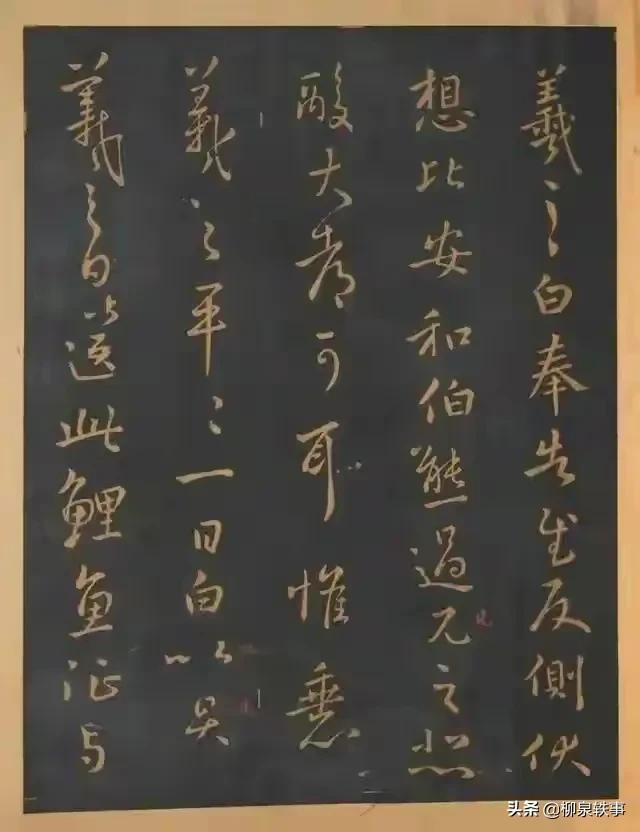 羲之白奉告反側伏
想比安和伯熊過之悲
酸大都可耳 惟
羲之平〻一日白以具
羲之白以送此鯉魚征与
头条 @柳泉轶事